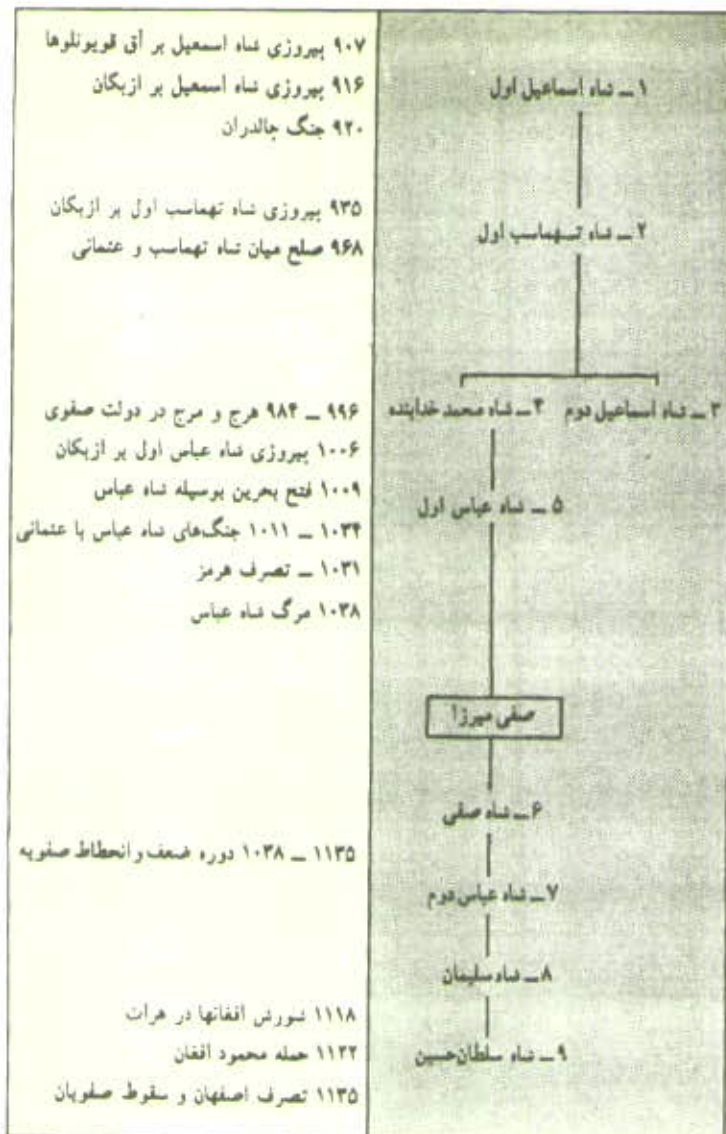 ۱ ــ شاه اسماعیل اول
۲ ــ شاه تـهماسب اول
۳ ــ شاه اسماعیل دوم
۴ــ شاه محمد خدابنده
۵ ــ شاه عباس اول
صفی میرزا
۶ــ شاه صفی
۷ــ شاه عباس دوم
۸ــ شاه سلیمان
۹ــ شاه سلطان‌حسین
۹۰۷ پیروزی شاه اسمعیل بر آق قویونلوها
۹۱۶ پیروزی شاه اسمعیل بر ازبکان
۹۲۰ جنگ چالدران
۹۳۵ پیروزی شاه تهماسب اول بر ازبکان
۹۶۸ صلح میان شاه تهماسب و عثمانی
۹۹۶ ــ ۹۸۴ هرج و مرج در دولت صفوی
۱۰۰۶ پیروزی شاه عباس اول بر ازبکان
۱۰۰۹ فتح بحرین بوسیله شاه عباس
۱۰۳۴ ــ ۱۰۱۱ جنگ‌های شاه عباس با عثمانی
۱۰۳۱ ــ تصرف هرمز
۱۰۳۸ مرگ شاه عباس
۱۱۳۵ ــ ۱۰۳۸ دوره ضعف و انحطاط صفویه
۱۱۱۸ شورش افغانها در هرات
۱۱۳۲ حمله محمود افغان
۱۱۳۵ تصرف اصفهان و سقوط صفویان